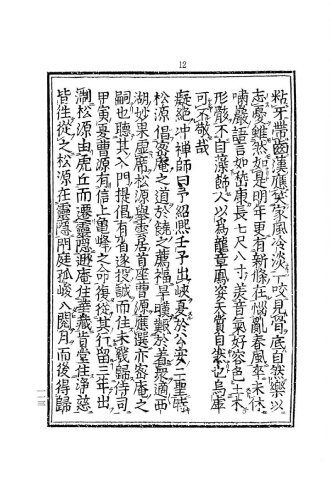 12
粘牙帶齒漢應笑家風冷淡一咬見骨底自然樂以
忘憂雖然如是明年更有新條在惱亂春風卒未休
嘯巖語言如嵇康長七尺八寸美音氣好容色土木
形骸不自藻飾人以為龍章鳳姿天質自然也烏庫
可不敬哉
癡絕冲禪師曰予紹熙壬子出峽夏於公安二聖時
松源倡密庵之道於饒之薦福旱暵艱於着衆適西
湖妙果虛席松源舉雲居首座曹源應選亦密庵之
嗣也聽其入門提倡有省遂投誠而住未幾歸侍司
甲寅夏曹源有信上龜峰之命復從其行留三年出
淛松源由虎丘而遷靈隱遯庵住華藏肯堂住淨慈
皆往從之松源在靈隱門庭孤峻入閱月而後得歸